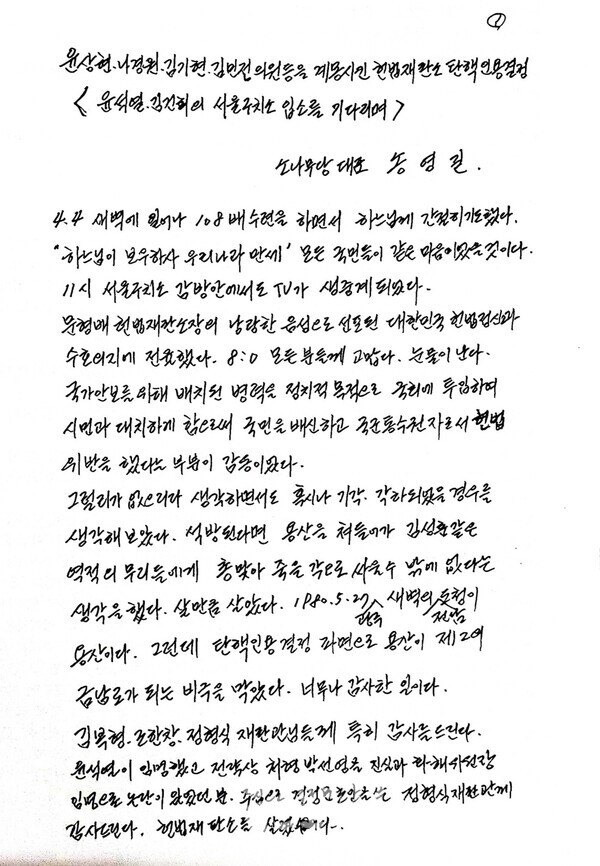 ①
윤상현.나경원.김기현.김민전의원등을 계몽시킨 헌법재판소 탄핵인용결정
< 윤석열.김건희의 서울구치소 입소를 기다리며 >
소나무당 대표 송영길.
4.4 새벽에 일어나 108배수련을 하면서 하느님께 간절히기도했다.
"하느님이 보우하사 우리나라 만세" 모든 국민들이 같은 마음이었을것이다.
11시 서울구치소 감방안에서도 TV가 생중계 되었다.
문형배 헌법재판소장의 낭랑한 음성으로 선포된 대한민국 헌법정신과
수호의지에 전율했다. 8:0 모든분들께 고맙다. 눈물이 난다.
국가안보를 위해 배치된 병력을 정치적 목적으로 국회에 투입하여
시민과 대치하게 함으로써 국민을 배신하고 국군통수권자로서 헌법
위반을 했다는 부분이 감동이었다.
그럴리가 없으리라 생각하면서도 혹시나 기각.각하되었을 경우를
생각해 보았다. 석방된다면 용산을 쳐들어가 김성훈같은
역적의 무리들에게 총맞아 죽을 각오로 싸울수 밖에 없다는
생각을 했다. 살만큼 살았다. 1980.5.27 광주 새벽의 전남 도청이
용산이다. 그런데 탄핵인용결정 파면으로 용산이 제2의
금남로가 되는 비극을 막았다. 너무나 감사한 일이다.
김복형.조한창.정형식 재판관님들께 특히 감사를드린다.
윤석열이 임명했고 전략상 처형 박선영을 진실과 화해위원장
임명으로 논란이 있었던 분. 주심으로 결정문 정형식재판관께
감사드린다. 헌법재판소를